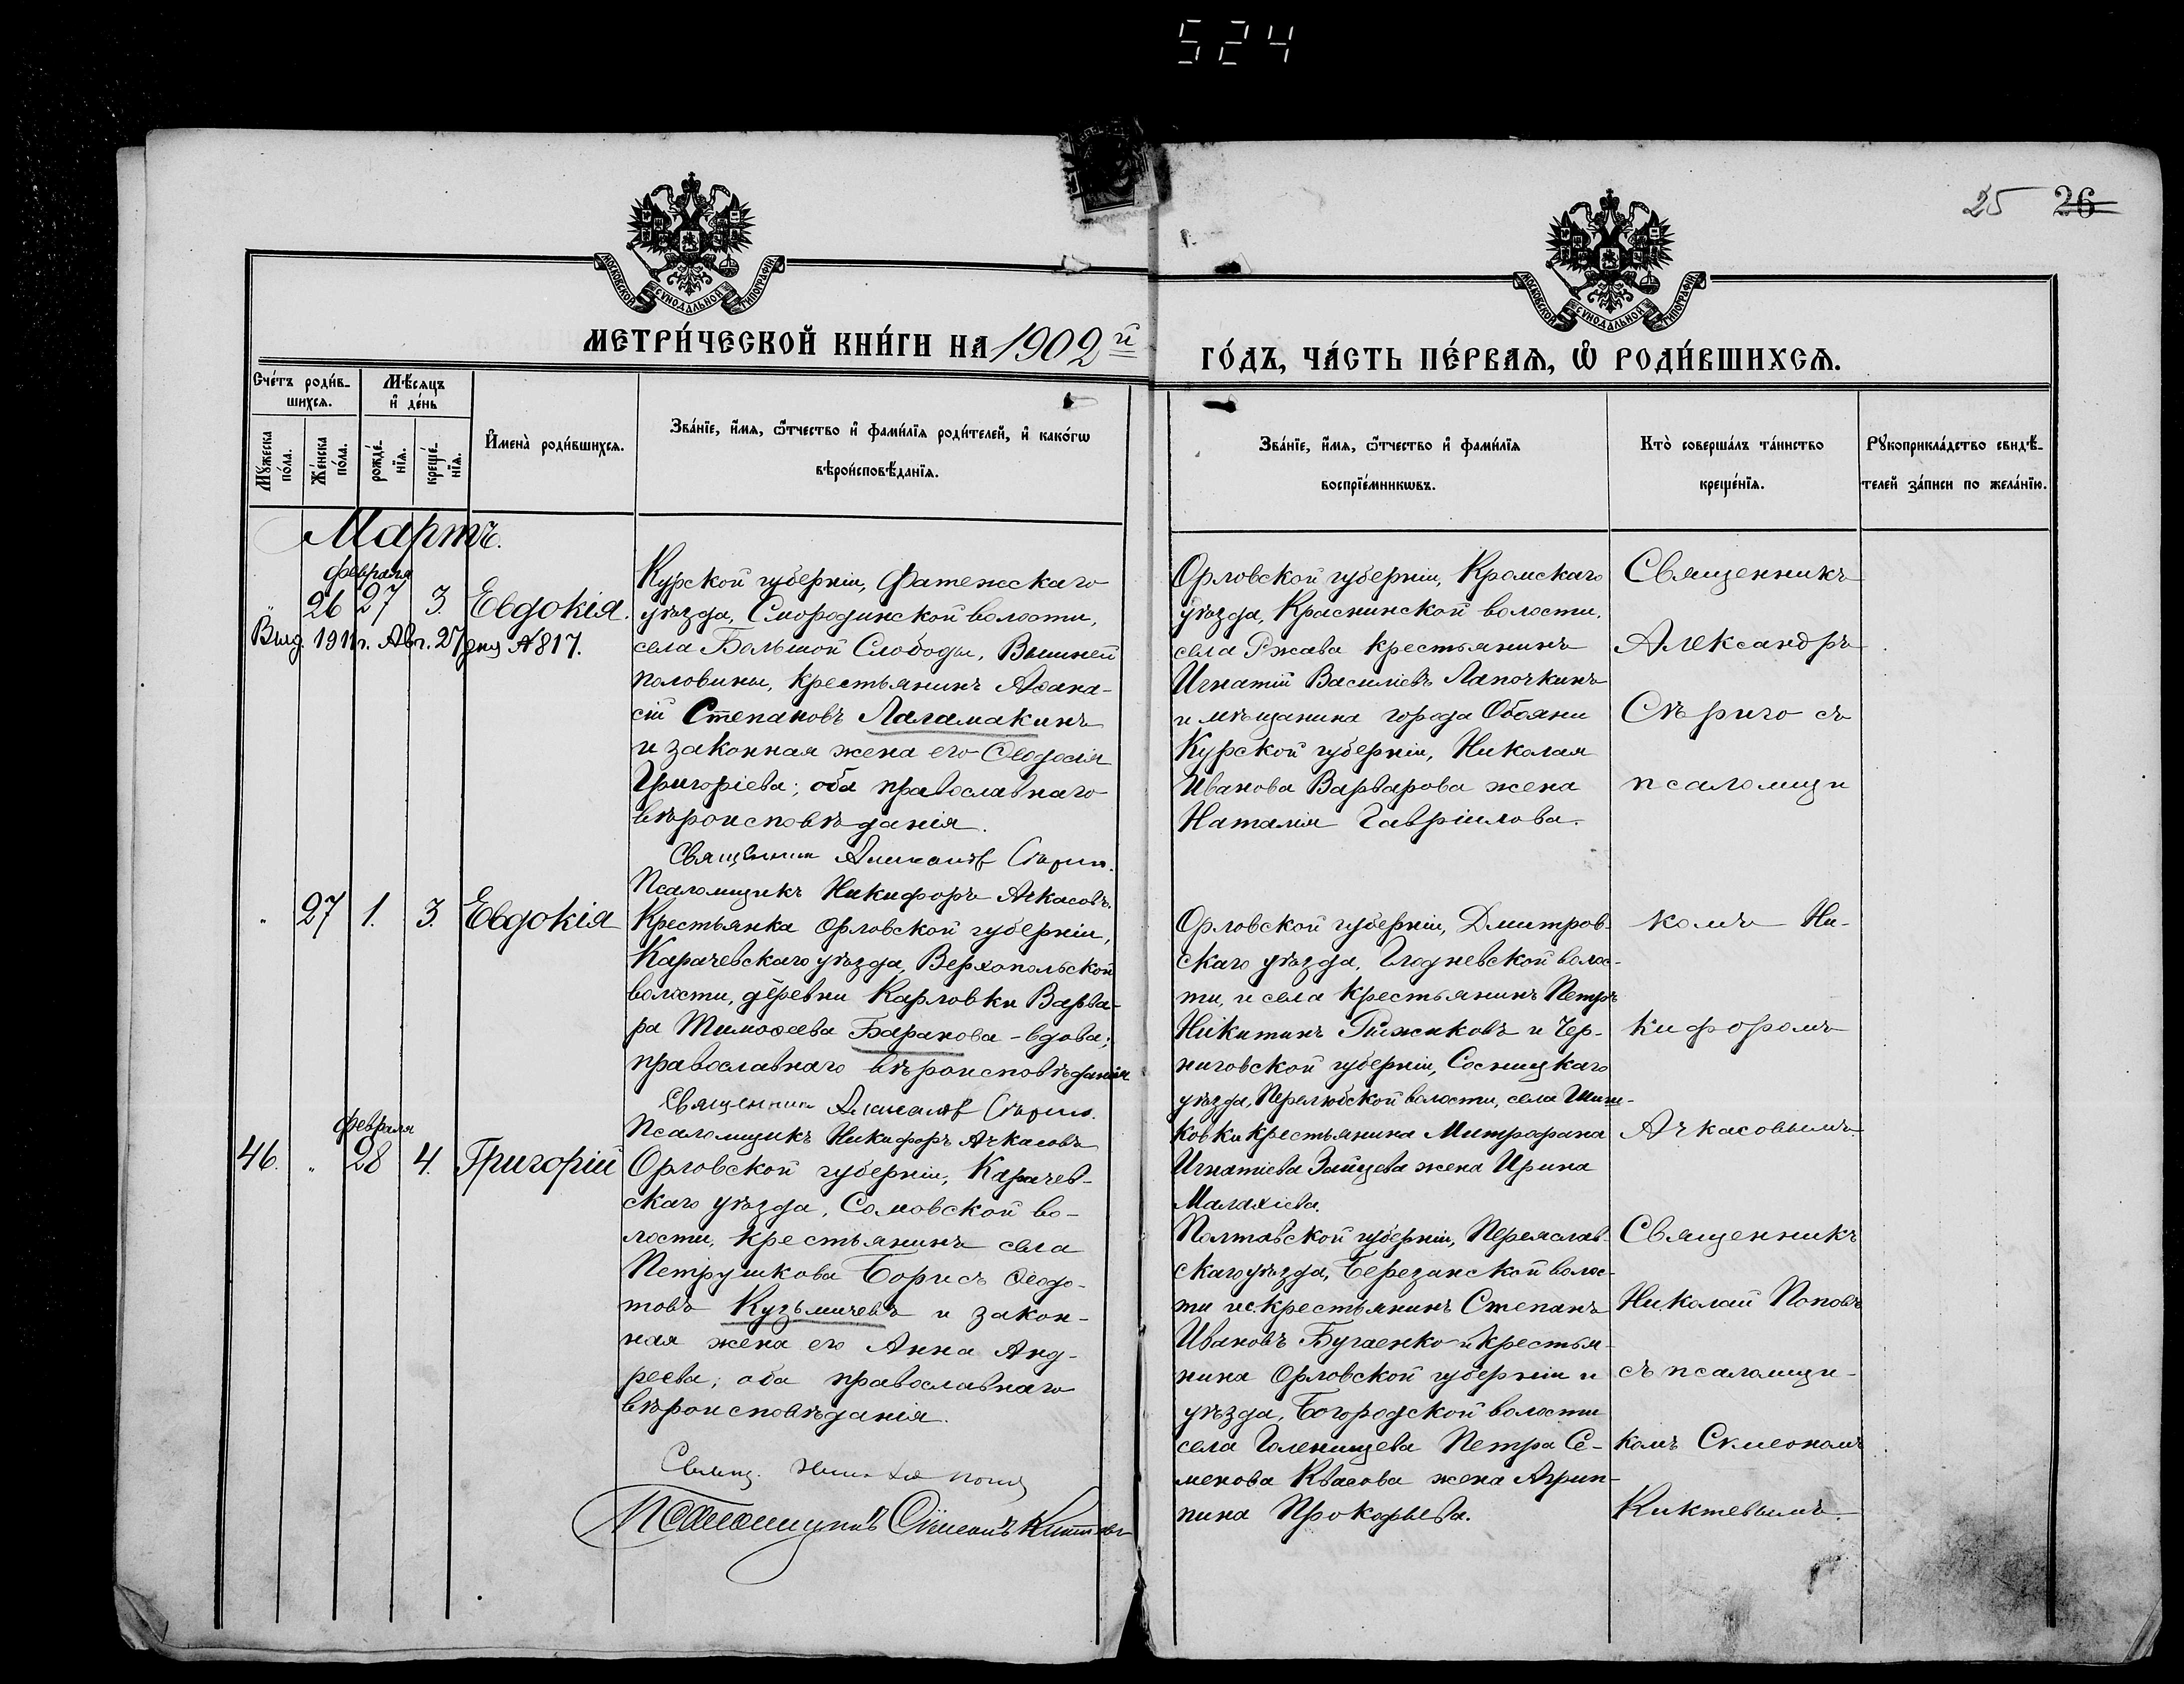 524
25 26
МОСКОВСКОЙ СѴНОДАЛЬНОЙ ТИПОГРАФІИ
МОСКОВСКОЙ СѴНОДАЛЬНОЙ ТИПОГРАФІИ
МЕТРИ́ЧЕСКОЙ КНИ́ГИ НА 1902й
ГО́ДЪ, ЧА́СТЬ ПЕ́РВАЯ, Ѡ҆ РОДИ́ВШИХСЯ.
Сче́тъ роди́в-
шихся.
Мѣ́сяцъ
и҆ де́нь
Мꙋ́жеска
по́ла.
Же́нска
по́ла.
рожде́-
нїя.
креще́-
нїя.
И҆мена̀ роди́вшихся.
Зва́нїе, и҆́мя, ѻ҆́тчество и҆ фами́лїя роди́телей, и҆ како́гѡ
вѣроисповѣ́данїя.
Зва́нїе, и҆́мя, ѻ҆́тчество и҆ фами́лїя
воспрїе́мникѡвъ.
Кто̀ соверша́лъ та́инство
креще́нїя.
Рꙋкоприкла́дство свидѣ́-
телей за́писи по жела́нїю.
Мартъ.
февраля
" 26 27 3. Евдокія.
Выд. 1911г. Авг. 27 дня №817.
Курской губерніи, Фатежскаго
уѣзда, Смородинской волости,
села Большой Слободы, Вышней
половины, крестьянинъ Аѳана-
сій Степановъ Лаламакинъ
и законная жена его Ѳеодосія
Григоріева; оба православнаго
вѣроисповѣданія.
Священникъ Александръ Сѣрич.
Псаломщикъ Никифоръ Ачкасовъ.
Орловской губерніи, Кромскаго
уѣзда, Краснинской волости,
села Ржава крестьянинъ
Игнатій Василіевъ Лапочкинъ
и мѣщанина города Обояни
Курской губерніи, Николая
Иванова Варварова жена
Наталія Гавріилова.
Священникъ
Александръ
Сѣрич съ
псаломщи
" 27 1. 3. Евдокія
Крестьянка Орловской губерніи,
Карачевскаго уѣзда, Верхопольской
волости, деревни Карловки Варва-
ра Тимоѳеева Баранова - вдова;
православнаго вѣроисповѣданія
Священникъ Александръ Сѣрич.
Псаломщикъ Никифоръ Ачкасовъ
Орловской губерніи, Дмитров-
скаго уѣзда, Глодневской волос-
ти, и села крестьянинъ Петръ
Никитинъ Рыжиковъ и Чер-
ниговской губерніи, Сосницкаго
уѣзда, Перелюбской волости, села Шиш-
ковки крестьянина Митрофана
Игнатіева Зайцева жена Ирина
Малахіева.
комъ Ни-
кифоромъ
Ачкасовымъ.
февраля
46. " 28 4. Григорій
Орловской губерніи, Карачев-
скаго уѣзда, Сомовской во-
лости, крестьянинъ села
Петрушкова Борисъ Ѳеодо-
товъ Кузьмичевъ и закон-
ная жена его Анна Анд-
реева; оба православнаго
вѣроисповѣданія.
Свящ. Николай Попов
Псаломщикъ Сѵмеонъ Киктевъ
Полтавской губерніи, Переяслав-
скаго уѣзда, Березанской волос-
ти и с. крестьянинъ Степанъ
Ивановъ Бугаенко и крестья-
нина Орловской губерніи и
уѣзда, Богородской волости
села Голенищева Петра Се-
менова Квасова жена Агрип-
пина Прокофьева.
Священникъ
Николай Поповъ
съ псаломщи-
комъ Сѵмеономъ
Киктевымъ.